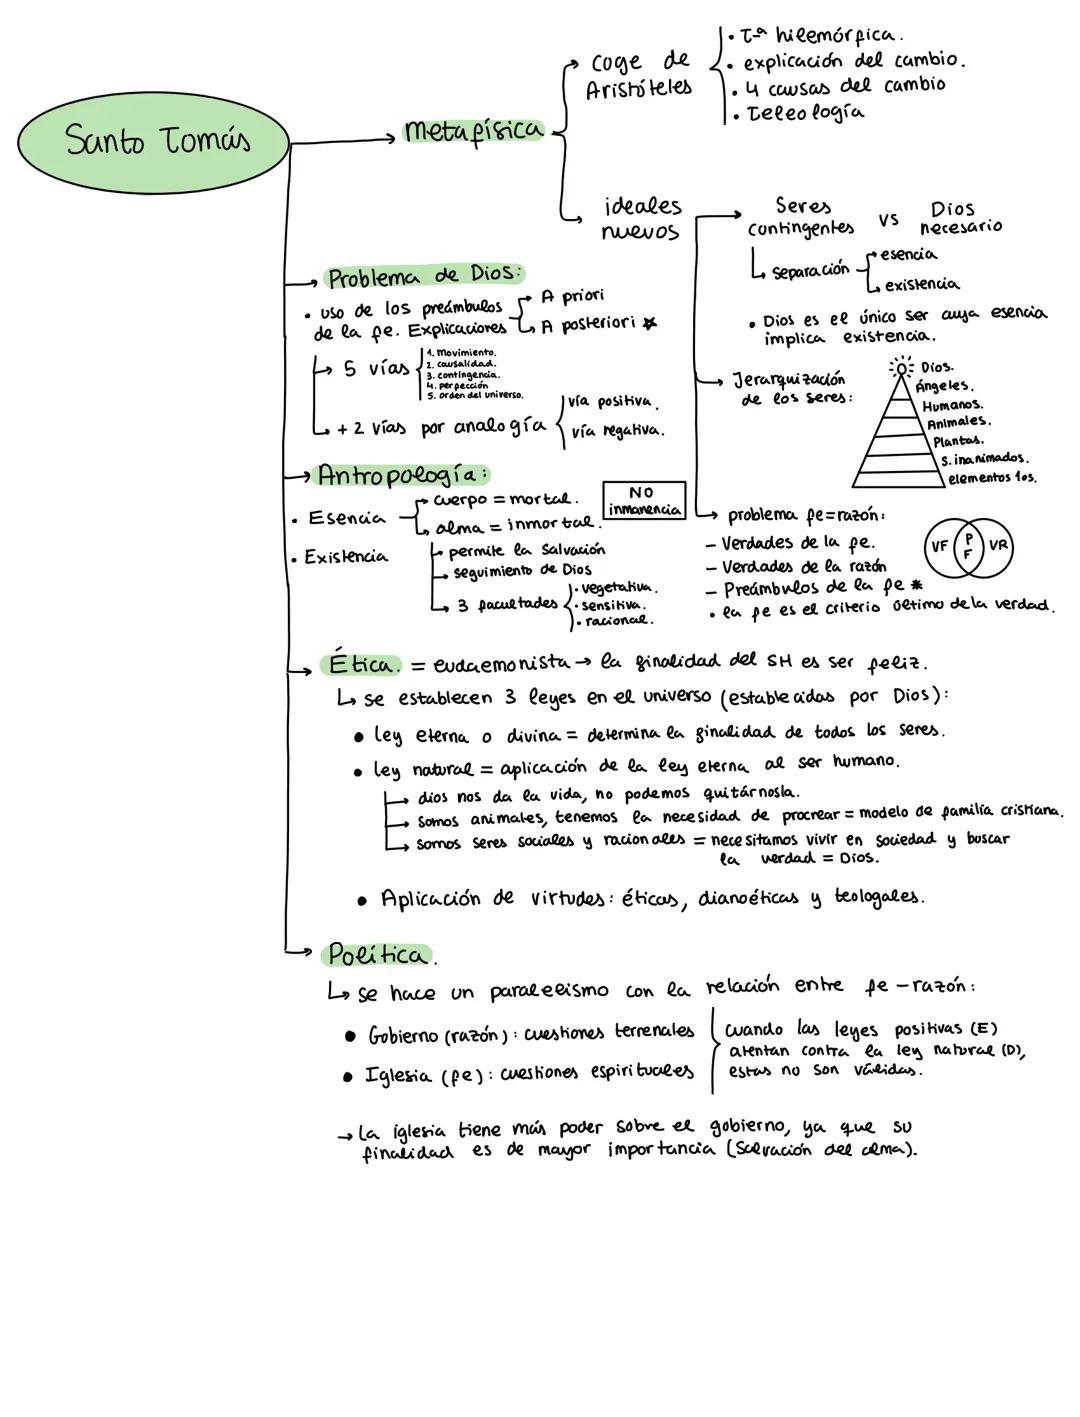 Santo Tomás
metafísica
coge de
Aristóteles
• Tª hilemórfica.
• explicación del cambio.
• 4 causas del cambio
• Teleología
ideales
nuevos
Seres
contingentes
vs
Dios
necesario
separación
esencia
existencia
• Dios es el único ser cuya esencia
implica existencia.
Jerarquización
de los seres:
Dios.
Ángeles.
Humanos.
Animales.
Plantas.
S. inanimados.
elementos 1os.
problema fe=razón:
– Verdades de la fe.
– Verdades de la razón
– Preámbulos de la fe *
• la fe es el criterio último de la verdad.
VF
P
F
VR
Problema de Dios:
• uso de los preámbulos
de la fe. Explicaciones
A priori
A posteriori *
5 vías
1. Movimiento.
2. causalidad.
3. contingencia.
4. perfección
5. orden del universo.
+ 2 vías por analogía
vía positiva.
vía negativa.
Antropología:
• Esencia
cuerpo = mortal.
alma = inmortal.
NO
inmanencia
• Existencia
permite la salvación
seguimiento de Dios
3 facultades
• vegetativa.
• sensitiva.
• racional.
Ética. = eudaemonista → la finalidad del SH es ser feliz.
↳ se establecen 3 leyes en el universo (establecidas por Dios):
• ley eterna o divina = determina la finalidad de todos los seres.
• ley natural = aplicación de la ley eterna al ser humano.
→ dios nos da la vida, no podemos quitárnosla.
→ somos animales, tenemos la necesidad de procrear = modelo de familia cristiana.
→ somos seres sociales y racionales = necesitamos vivir en sociedad y buscar
la verdad = Dios.
• Aplicación de virtudes: éticas, dianoéticas y teologales.
Política.
↳ se hace un paralelismo con la relación entre fe – razón:
• Gobierno (razón): cuestiones terrenales
• Iglesia (fe): cuestiones espirituales
cuando las leyes positivas (E)
atentan contra la ley natural (D),
estas no son válidas.
→ La iglesia tiene más poder sobre el gobierno, ya que su
finalidad es de mayor importancia (Salvación del alma).